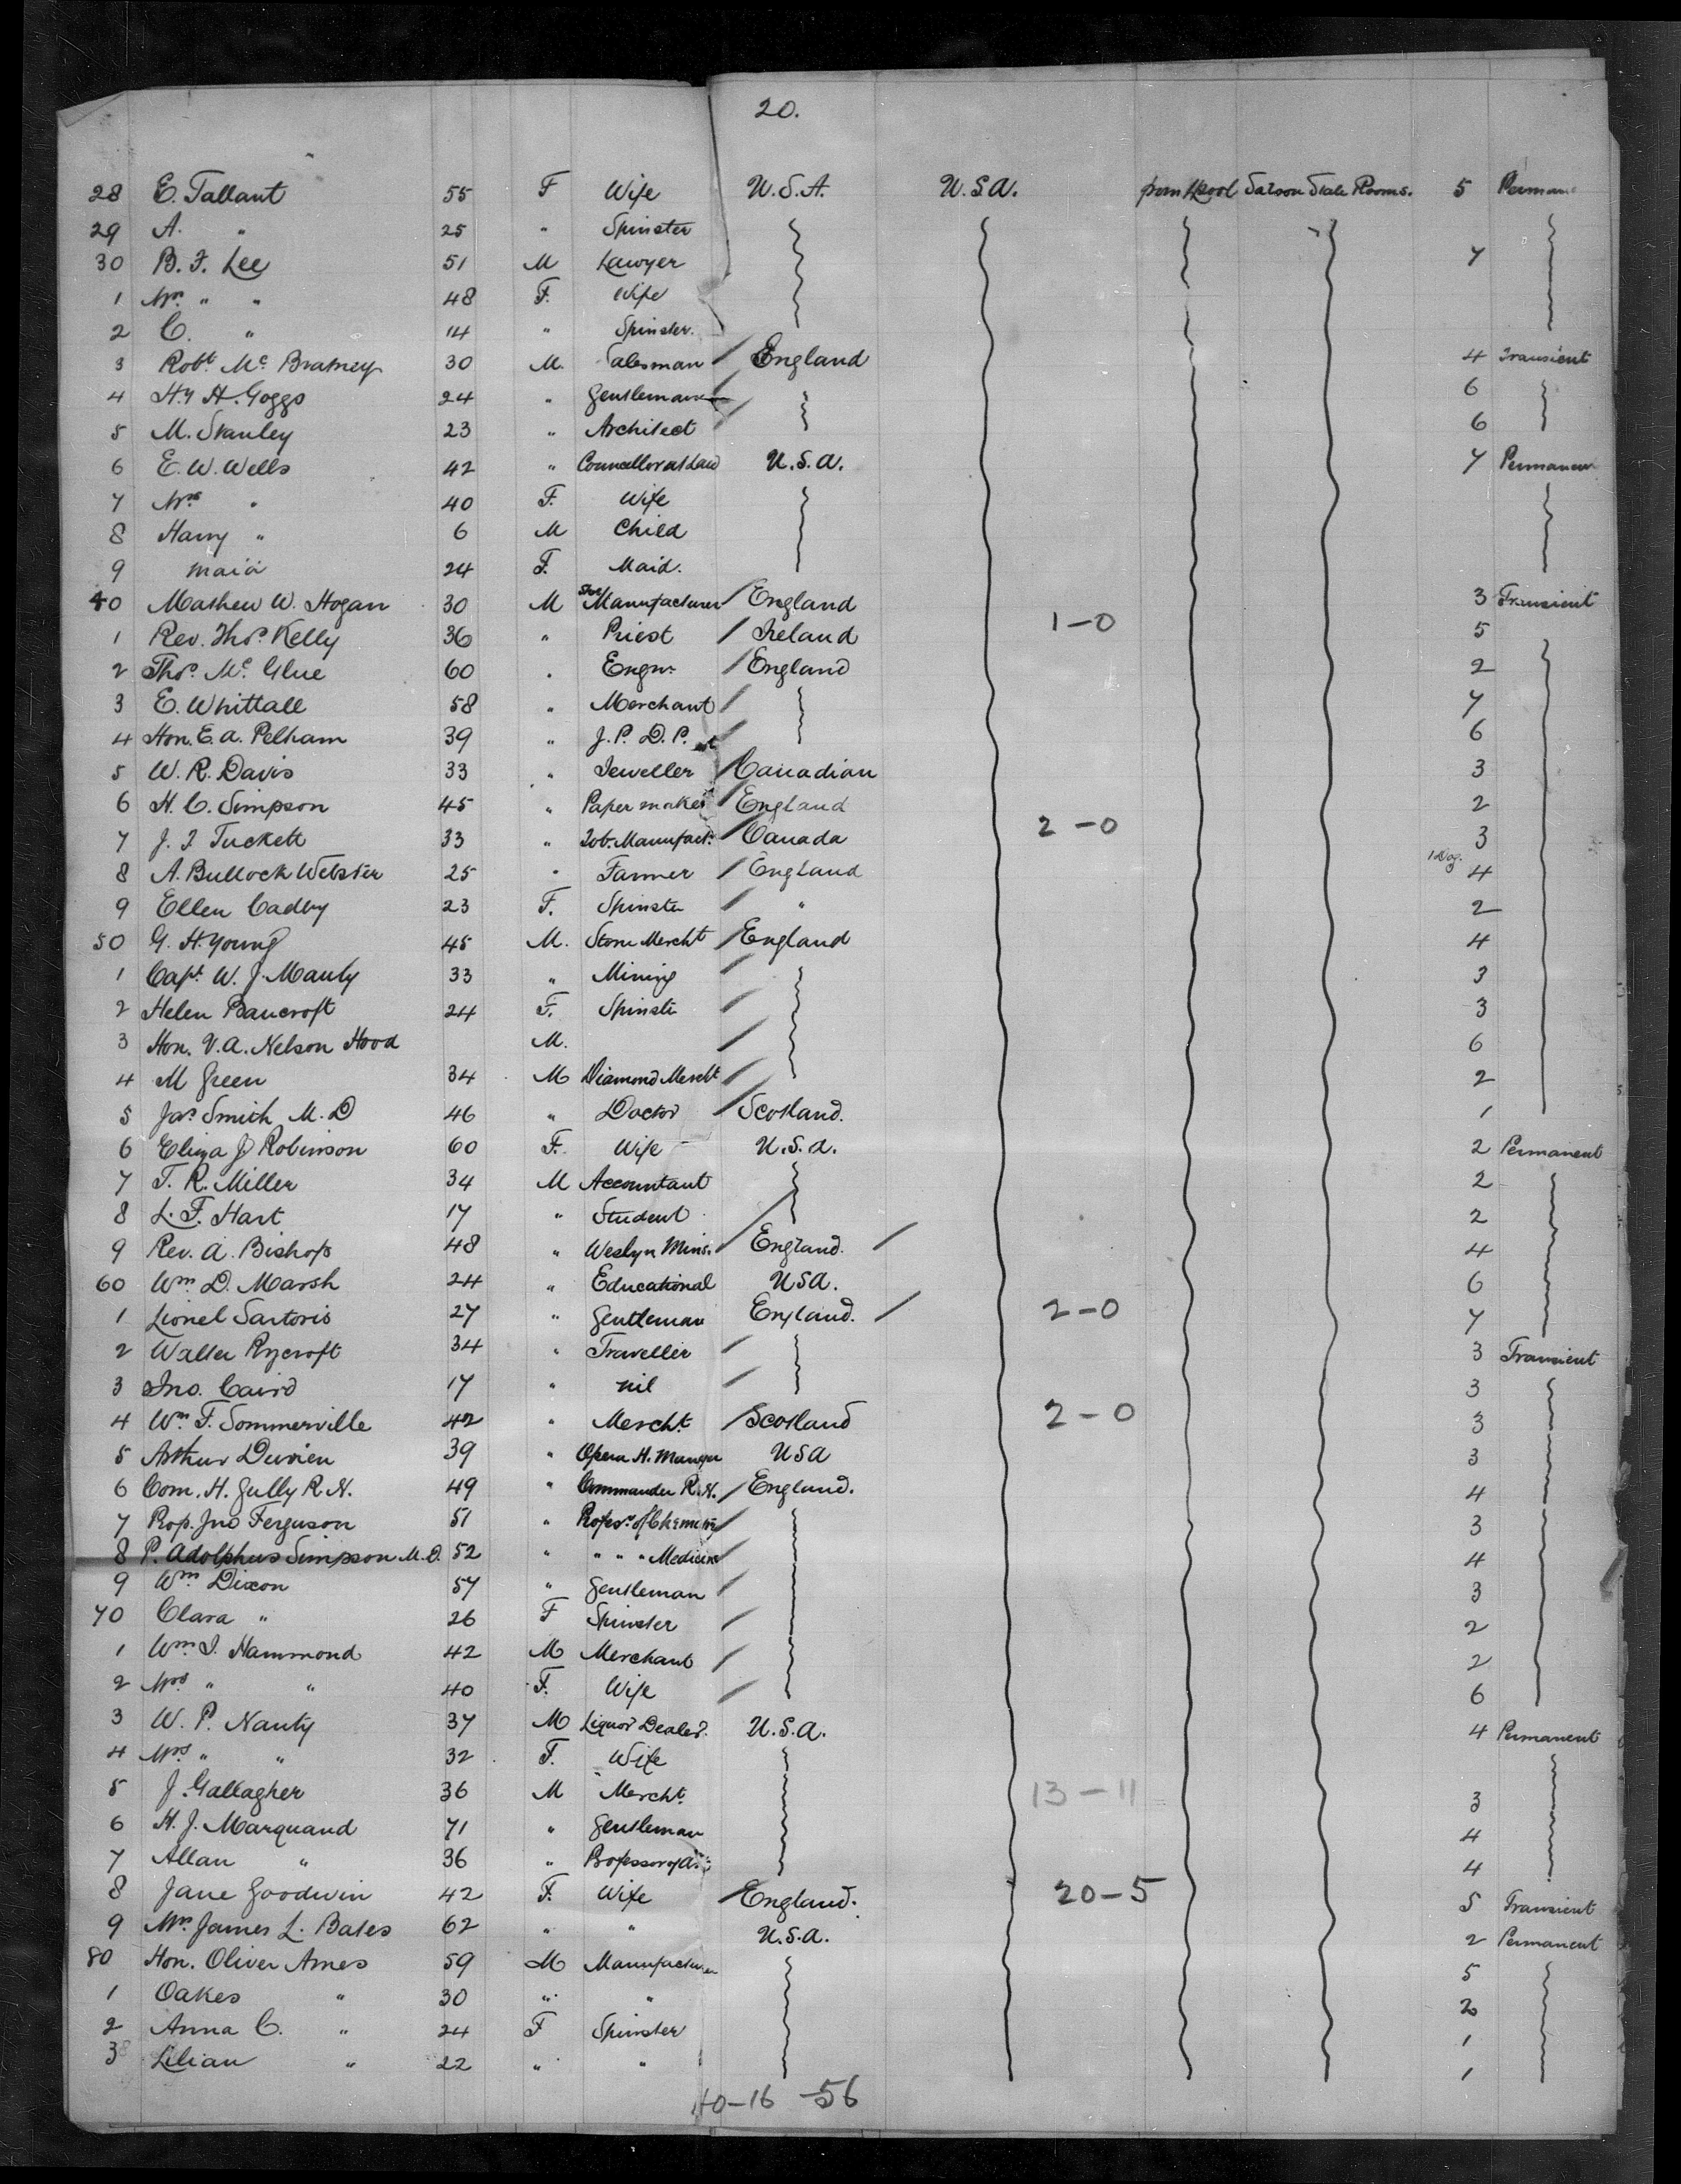 20.
28 E. Tallant 55 F Wife U.S.A. U.S.A. from L'pool Saloon State Rooms. 5 Permanent
29 A. " 25 " Spinster
30 B. F. Lee 51 M Lawyer 7
1 Mrs " " 48 F. Wife
2 C. " 14 " Spinster.
3 Robt. Mc Bratney 30 M. Salesman / England 4 Transient
4 Hy H. Goggs 24 " Gentleman 6
5 M. Stanley 23 " Architect / 6
6 E. W. Wells 42 " Councellor at Law U.S.A. 7 Permanent
7 Mrs " 40 F. Wife
8 Harry " 6 M Child
9 maid 24 F. Maid.
40 Mathew W. Hogan 30 M Manufacturer / England 3 Transient
1 Rev. Thos. Kelly 36 " Priest / Ireland 1-0 5
2 Thos. Mc. Glue 60 " Engnr / England 2
3 E. Whittall 58 " Merchant / 7
4 Hon. E. A. Pelham 39 " J. P. D. P. / 6
5 W. R. Davis 33 " Jeweller / Canadian 3
6 H. C. Simpson 45 " Paper maker / England 2
7 J. T. Tuckett 33 " Tob. Manufact. / Canada 2-0 3
8 A. Bullock Webster 25 " Farmer / England 1 Dog. 4
9 Ellen Cadby 23 F. Spinster / " 2
50 G. H. Young 45 M. Stone Mercht / England 4
1 Capt. W. J. Manly 33 " Mining / 3
2 Helen Bancroft 24 F. Spinster / 3
3 Hon. V. A. Nelson Hood M. / 6
4 M Green 34 M Diamond Mercht / 2
5 Jas. Smith M. D 46 " Doctor / Scotland. 1
6 Eliza J Robinson 60 F. Wife U.S.A. 2 Permanent
7 T. R. Miller 34 M Accountant 2
8 L. F. Hart 17 " Student 2
9 Rev. A. Bishop 48 " Weslyn Mins. / England. / 4
60 Wm. D. Marsh 24 " Educational USA. 6
1 Lionel Sartoris 27 " Gentleman England. / 2-0 7
2 Walter Rycroft 34 " Traveller / 3 Transient
3 Jno. Caird 17 " nil / 3
4 Wm. F. Sommerville 42 " Mercht. / Scotland 2-0 3
5 Arthur 39 " Opera H. Manager USA 3
6 Com. H. Gully R.N. 49 " Commander R.N. / England. 4
7 Prop. Jno Ferguson 51 " Profesr. of Chemistry / 3
8 P. Adolphus Simpson M.D. 52 " " " " Medicine / 4
9 Wm Dixon 57 " Gentleman / 3
70 Clara " 26 F Spinster / 2
1 Wm. I. Hammond 42 M Merchant / 2
2 Mrs " " 40 F. Wife / 6
3 W. P. Nanty 37 M Liquor Dealer. U.S.A. 4 Permanent
4 Mrs " " 32 F. Wife
5 J. Gallagher 36 M Mercht. 13-11 3
6 H. J. Marquand 71 " Gentleman 4
7 Allan " 36 " Professor of 4
8 Jane Goodwin 42 F. Wife / England. 20-5 5 Transient
9 Mrs James L. Bates 62 " " U.S.A. 2 Permanent
80 Hon. Oliver Ames 59 M Manufacturer 5
1 Oakes " 30 " " 2
2 Anna C. " 24 F Spinster 1
3 Lilian " 22 " " 1
40-16 -56